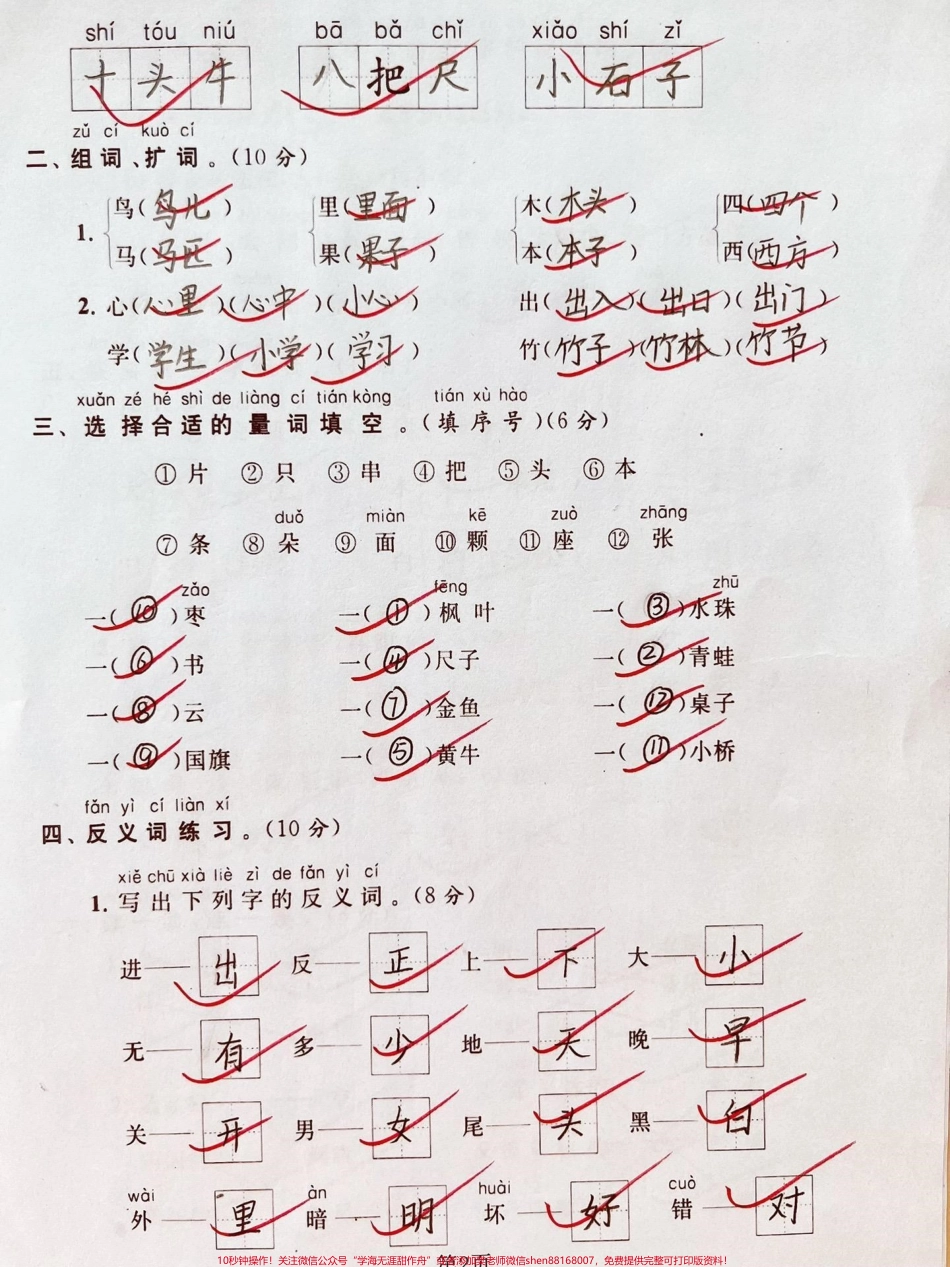 shí tóu niú bā bǎ chǐ xiǎo shí zǐ
十头牛 八把尺 小石子
zǔ cí kuò cí
二、组词、扩词。(10分)
鸟(鸟儿) 里(里面) 木(木头) 四(四个)
1.
马(马匹) 果(果子) 本(本子) 西(西方)
2. 心(心里)(心中)(小心) 出(出入)(出日)(出门)
学(学生)(小学)(学习) 竹(竹子)(竹林)(竹节)
xuǎn zé hé shì de liàng cí tián kòng tián xù hào
三、选择合适的量词填空。(填序号)(6分)
①片 ②只 ③串 ④把 ⑤头 ⑥本
duǒ miàn kē zuò zhāng
⑦条 ⑧朵 ⑨面 ⑩颗 ⑪座 ⑫张
zǎo fēng zhū
一(⑩)枣 一(①)枫叶 一(③)水珠
一(⑥)书 一(④)尺子 一(②)青蛙
一(⑧)云 一(⑦)金鱼 一(⑫)桌子
一(⑨)国旗 一(⑤)黄牛 一(⑪)小桥
fǎn yì cí liàn xí
四、反义词练习。(10分)
xiě chū xià liè zì de fǎn yì cí
1. 写出下列字的反义词。(8分)
进——出 反——正 上——下 大——小
无——有 多——少 地——天 晚——早
关——开 男——女 尾——头 黑——白
wài àn huài cuò
外——里 暗——明 坏——好 错——对
第2页
10秒钟操作!关注微信公众号“学海无涯甜作舟”
老师微信shen88168007,免费提供完整可打印版资料!